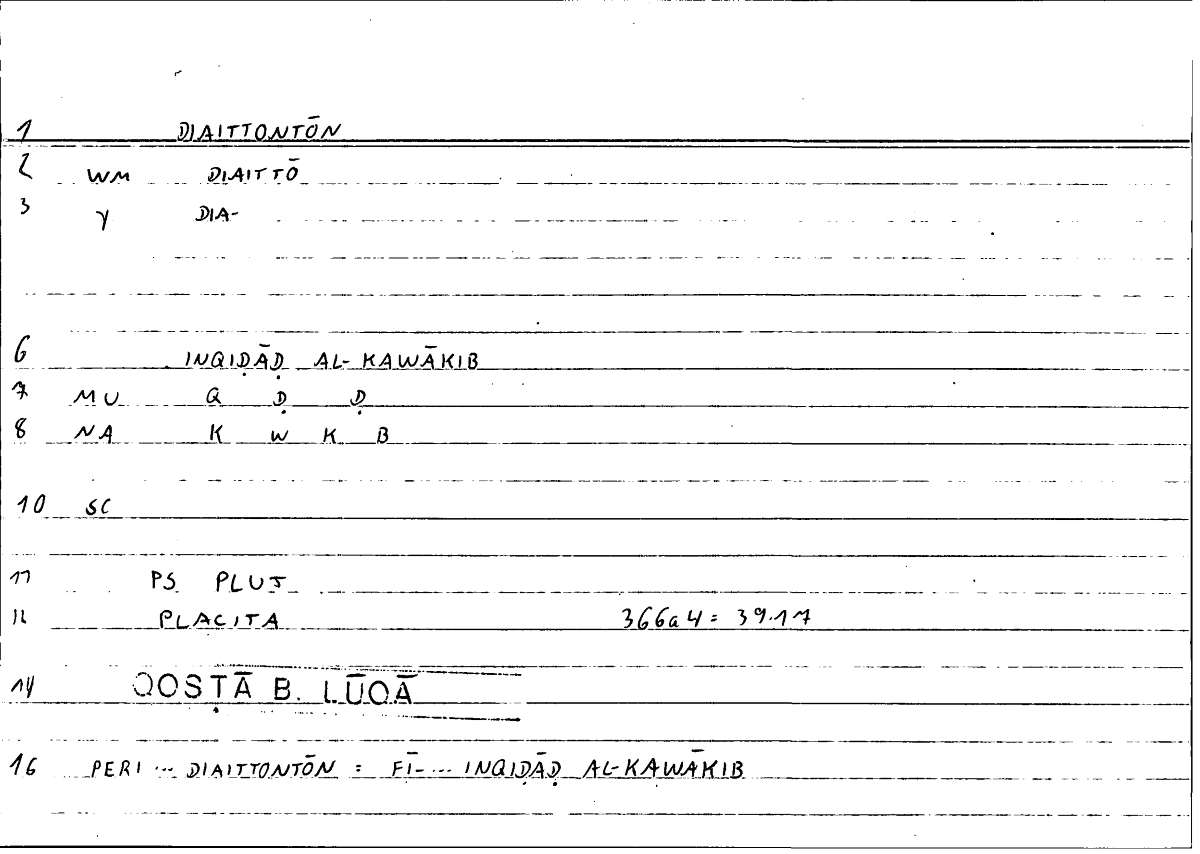 1 DIAITTONTŌN
2 WM DIAITTŌ
3 γ DIA-
6 INQIḌĀḌ AL-KAWĀKIB
7 MU Q Ḍ Ḍ
8 NA K W K B
10 SC
11 PS. PLUT
12 PLACITA 366a4 = 39.17
14 QOSṬĀ B. LŪQĀ
16 PERI ... DIAITTONTŌN = FĪ-... INQIḌĀḌ AL-KAWĀKIB